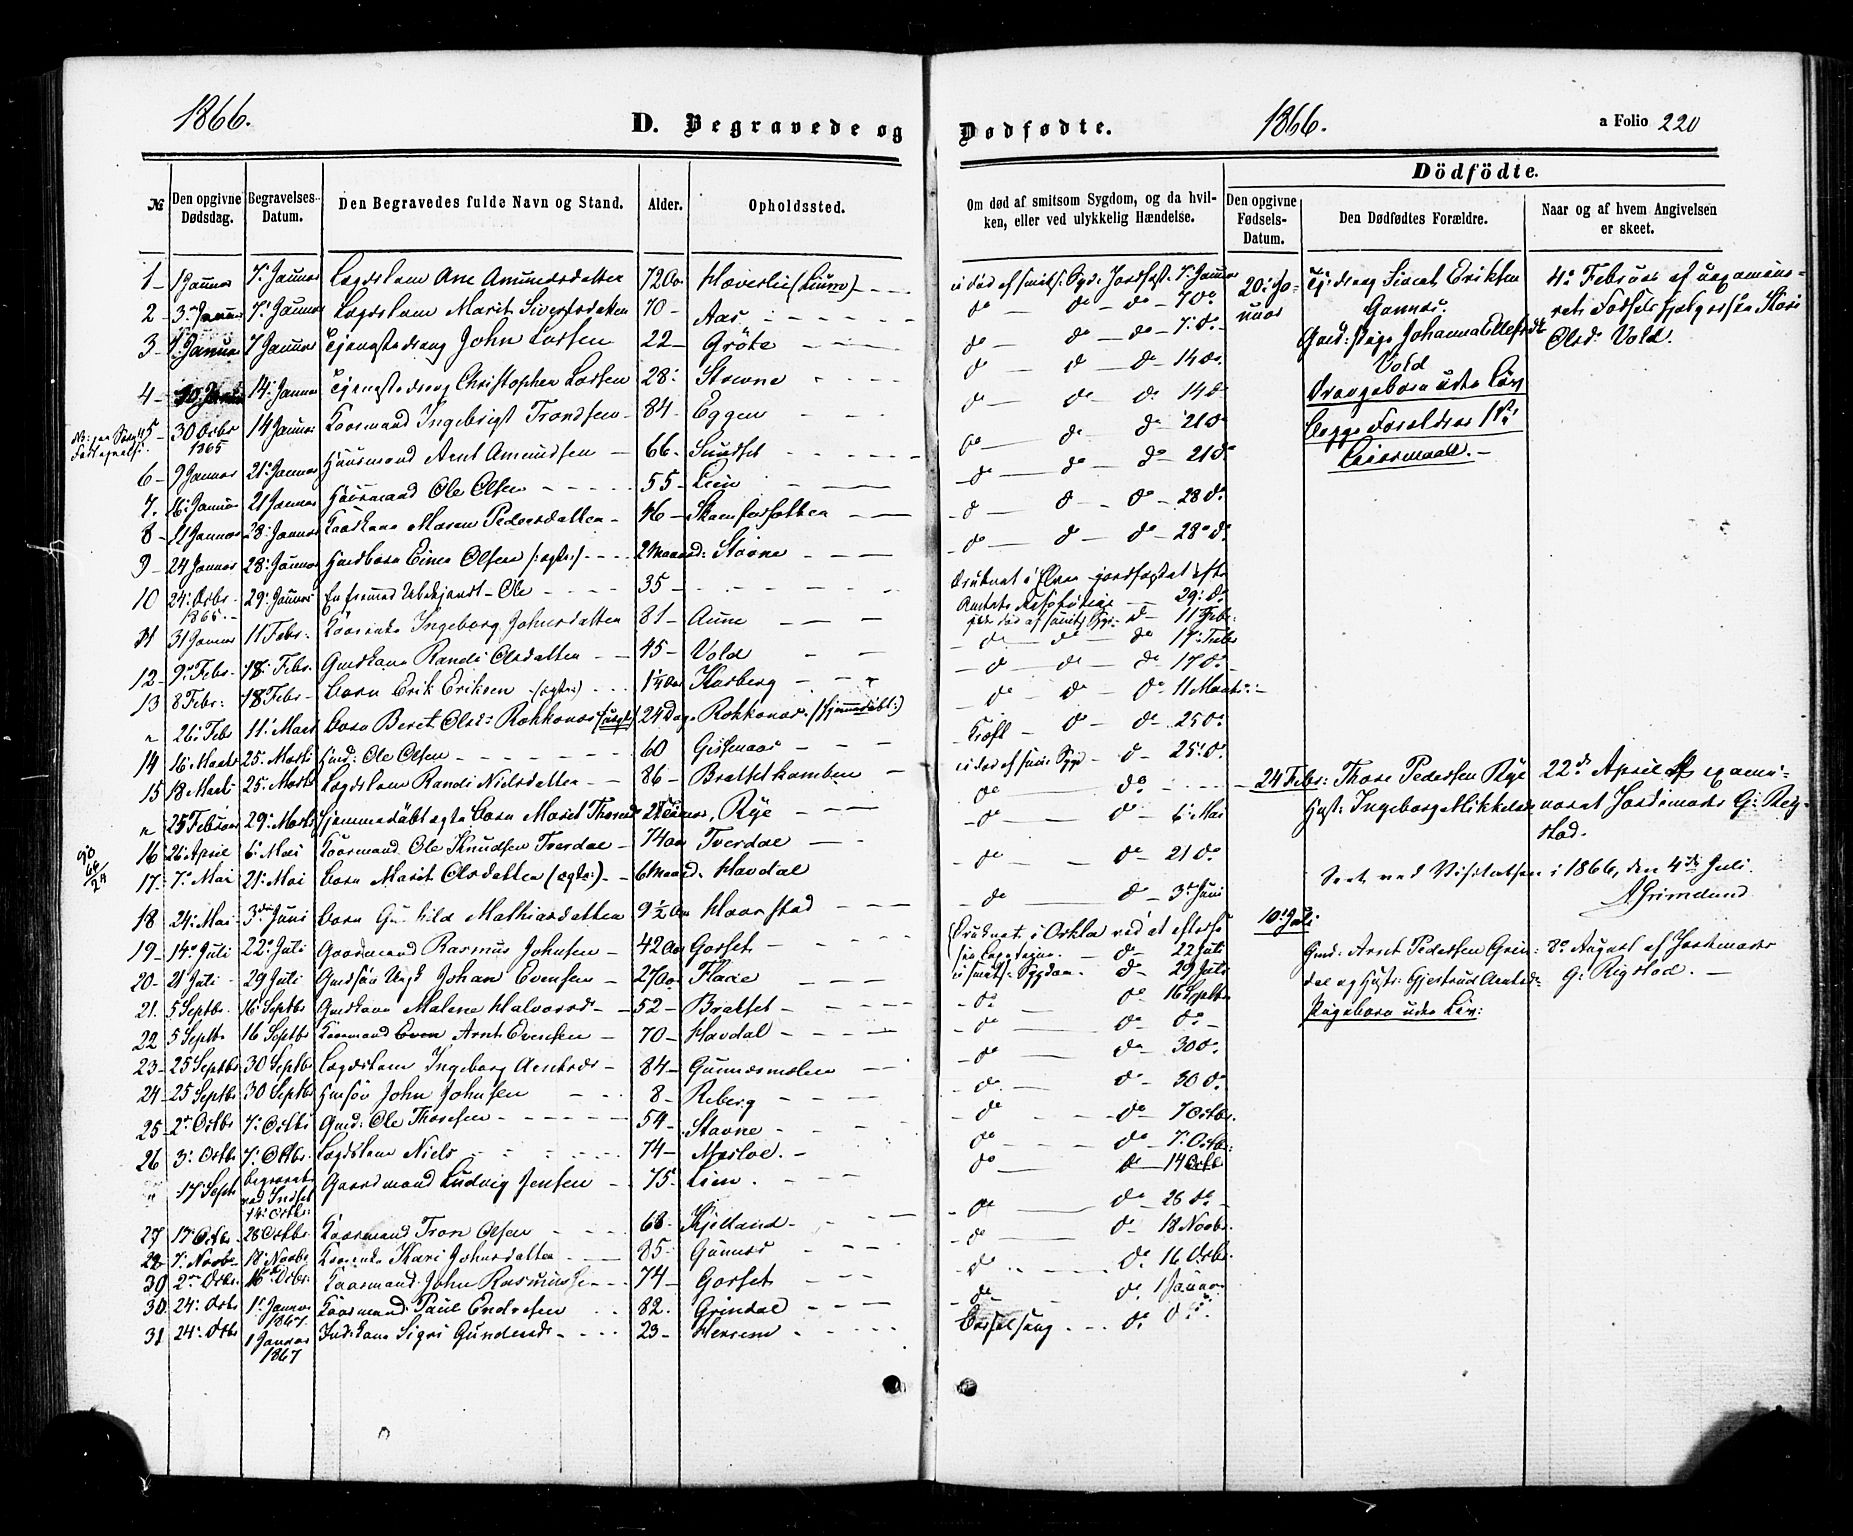 1866.
D. Begravede og
Dødfødte.
1866.
a Folio 220
Dödfödte.
№
Den opgivne Dødsdag.
Begravelses-Datum.
Den Begravedes fulde Navn og Stand.
Alder.
Opholdssted.
Om død af smitsom Sygdom, og da hvilken, eller ved ulykkelig Hændelse.
Den opgivne Fødsels-Datum.
Den Dødfødtes Forældre.
Naar og af hvem Angivelsen er skeet.
1 - 1 Januar 7. Januar Lægdslem Ane Amundsdatter 72 Aar Hæverlie
2 3. Januar 7. Januar Lægdslem Marit Sivertsdatter 70 - Aas
3 - Januar 7 Januar Tjenestedreng John Larsen 22 - Gröte
4 - 14. Januar Tjenestedreng Christopher Larsen 28. Stavne
5 - 30 Decbr 1865 14 Januar Kaarmand Ingebrigt Trondsen - 84 - Eggen
6 - 9 Januar 21. Januar Huusmand Arnt Amundsen - 66 - Sundset
7. 16. Januar 21 Januar Huusmand Ole Olsen 55 - Lien
8 - 21 Januar 28. Januar Kaarkone Maren Pedersdatter - 46 -
9 - 24 Januar 28. Januar Gmdbarn Olsen (:ægte:) 2 Maaned: Stavne
10 24. Decbr. 1865. 29. Januar En fremmed Ubekjendt - Ole 35 -
11 31 Januar 11 Febr. Kaarenke Ingeborg Johnsdatter 81 - Aune
12 - 9. Febr. 18. Febr. Gmdkone Randi Olsdatter - 45 - Vold
13 8 Febr: 18 Febr - Barn Erik Eriksen (:ægte:) 1¼ Aar Karberg
" 26. Febr 11. Marts Barn Beret Olsd: Rokkones (uægte) 24 Dage Rokkones. (Hjemmedöbt:)
14 16. Marts 25. Marts Gmd: Ole Olsen 60 Gisnaas
15 18 Marts 25. Marts Lægdslem Randi Nielsdatter - 86 - Brattskamben
" 25 Februar 29. Marts Hjemmedøbt ægte Barn Marit Thoresd Rye
16 26 April 6. Mai Kaarmand Ole Knudsen Tverdal - 74 Aar Tverdal
17. 7. Mai 21. Mai Barn Marit Olsdatter (:ægte:) - 6 Maaned. Havdal
18 24. Mai 3die Juni Barn Gunhild Mathiasdatter 9½ Aar Haarstad
19 - 14. Juli 22. Juli Gaardmand Rasmus Johnsen - 42 Aar Gorset
20 - 21 Juli 29 Juli Gmdsøn Ungk. Johan Evensen - 27 Aar Flaae
21. 5 Septbr. 16. Septbr Gmdkone Malene Halvorsd - 52 - Brattset
22 5 Septbr 16 Septbr Kaarmand Even Arnt Evensen - 70 - Havdal
23 - 25 Septbr 30 Septbr Lægdslem Ingeborg Arntsd - 84 - Gunnesmolien
24 - 25 Septbr 30 Septbr Huusm: John Johnsen 8 - Reberg
25 - 2. Octbr 7. Octbr Gmd: Ole Thoresen 54 - Stavne
26 3. Octbr 7. Octbr. Lægdslem Niels 74 - Mærlve. -
" 17 Septbr begravet ved Indset 14. Octbr: Gaardmand Ludvig Jensen - 75 - Lien
27 17 Octbr. 28 Octbr. Kaarmand Tron Olsen 68 - Kjelland
28 7. Novbr 18. Novbr. Kaarenke Kari Johnsdatter 85 - Gunnes
29 2. Decbr. 16. Decbr. Kaarmand John Rasmussen 74 - Gorset
30 24. Decbr 1. Januar 1867. Kaarmand Paul Endresen 82. Grindal
31 24. Decbr 1 Januar 1867 Indst.kone Sigri Gundersd - 23 - Herrem
ei död af smits. Sygd. Jordfæst. 7. Januar
do - do - do - 7 do
do - do - do - 7. do
do - do - do 14 do.
do - do - do 14 do
do - do - do 21 do
do - do - do 21 do.
do - do - do - 28 do.
do - do - do 28. do.
Druknet i Elven jordfæstet efter 29. do.
ikke død af smits. Syg: - do - 11 Febr:
do - do - do 17. Febr
do - do - do - 17 do.
do - do - do 11 Marts
Kræft do - do - 25 do.
ei død af smits: Sygd - do - 25. do.
do do
do - do - 6. Mai
do - do - 21 do.
do do - 3die Juni
Druknet i Orkla ved at
do - 22 Juli
ei smits: Sygdom. do - 29 Juli
do do 16 Septbr
do do do -
do do - 30 do.
do do - 30 do.
do do 7 Octbr.
do do - 7. Octbr:
do do - 14 Octbr
do do - 28 do.
do do 18 Novbr.
do do. 16 Decbr.
do do. 1 Januar
Barselseng do do
20. Januar Tjdreng Sivert Eriksen Gunnes. Gmd: pige Johanna Ellefsdt Vold Drengebarn uden Liv begge Forældres 1ste Leiermaal. -
4. Februar af uexamineret Fødselshjelperske Mari Olsd. Vold.
24 Febr: Thore Pedersen Rye Hust: Ingeborg Mikkelsd
22de April af examineret Jordemoder G. Rigstad.
Seet ved Visitatsen i 1866, den 4de Juli.
A Grimelund
10. Juli Gmd: Arnt Pedersen Grindal og Hustr: Gjertrud Arntsd: Pigebarn uden Liv:
3. August af Jordemoder G. Rigstad. -